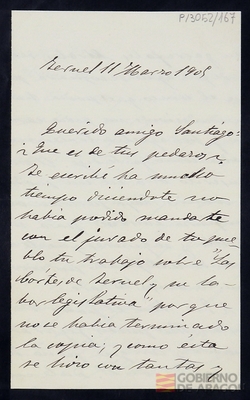 P/3052/167
Teruel 11 Marzo 1905
Querido amigo Santiago:
¿Que es de tus pedazos?
Te escribí ha mucho
tiempo diciendote no
había podido mandarte
con el jurado de tu pue
blo tu trabajo sobre "Las
Cortes de Teruel y su la
bor legislativa" porque
no se había terminado
la copia; y como esta
se hizo con tantas y
GOBIERNO
DE ARAGON